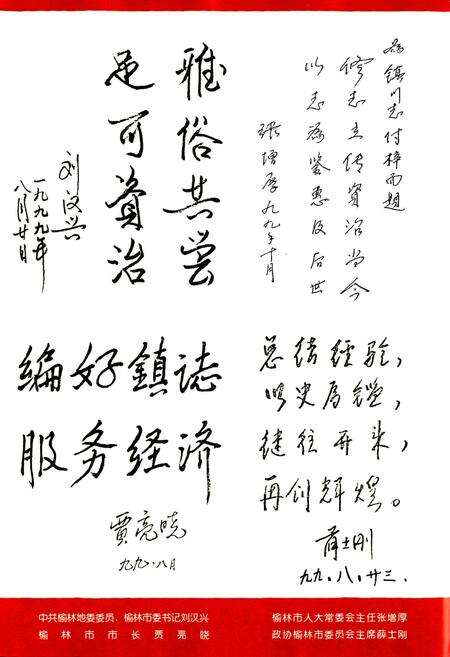 雅俗共尝
足可资治
刘汉兴
一九九九年
八月廿日
为镇川志付梓而题
修志立传资治当今
以志为鉴惠及后世
张增厚九九年十月
编好鎮誌
服务经济
贾亮晓
九九.八月
总结经验，
以史为鑑，
继往开来，
再创辉煌。
薛士刚
九九.八.廿三.
中共榆林地委委员、榆林市委书记刘汉兴
榆林市市长贾亮晓
榆林市人大常委会主任张增厚
政协榆林市委员会主席薛士刚